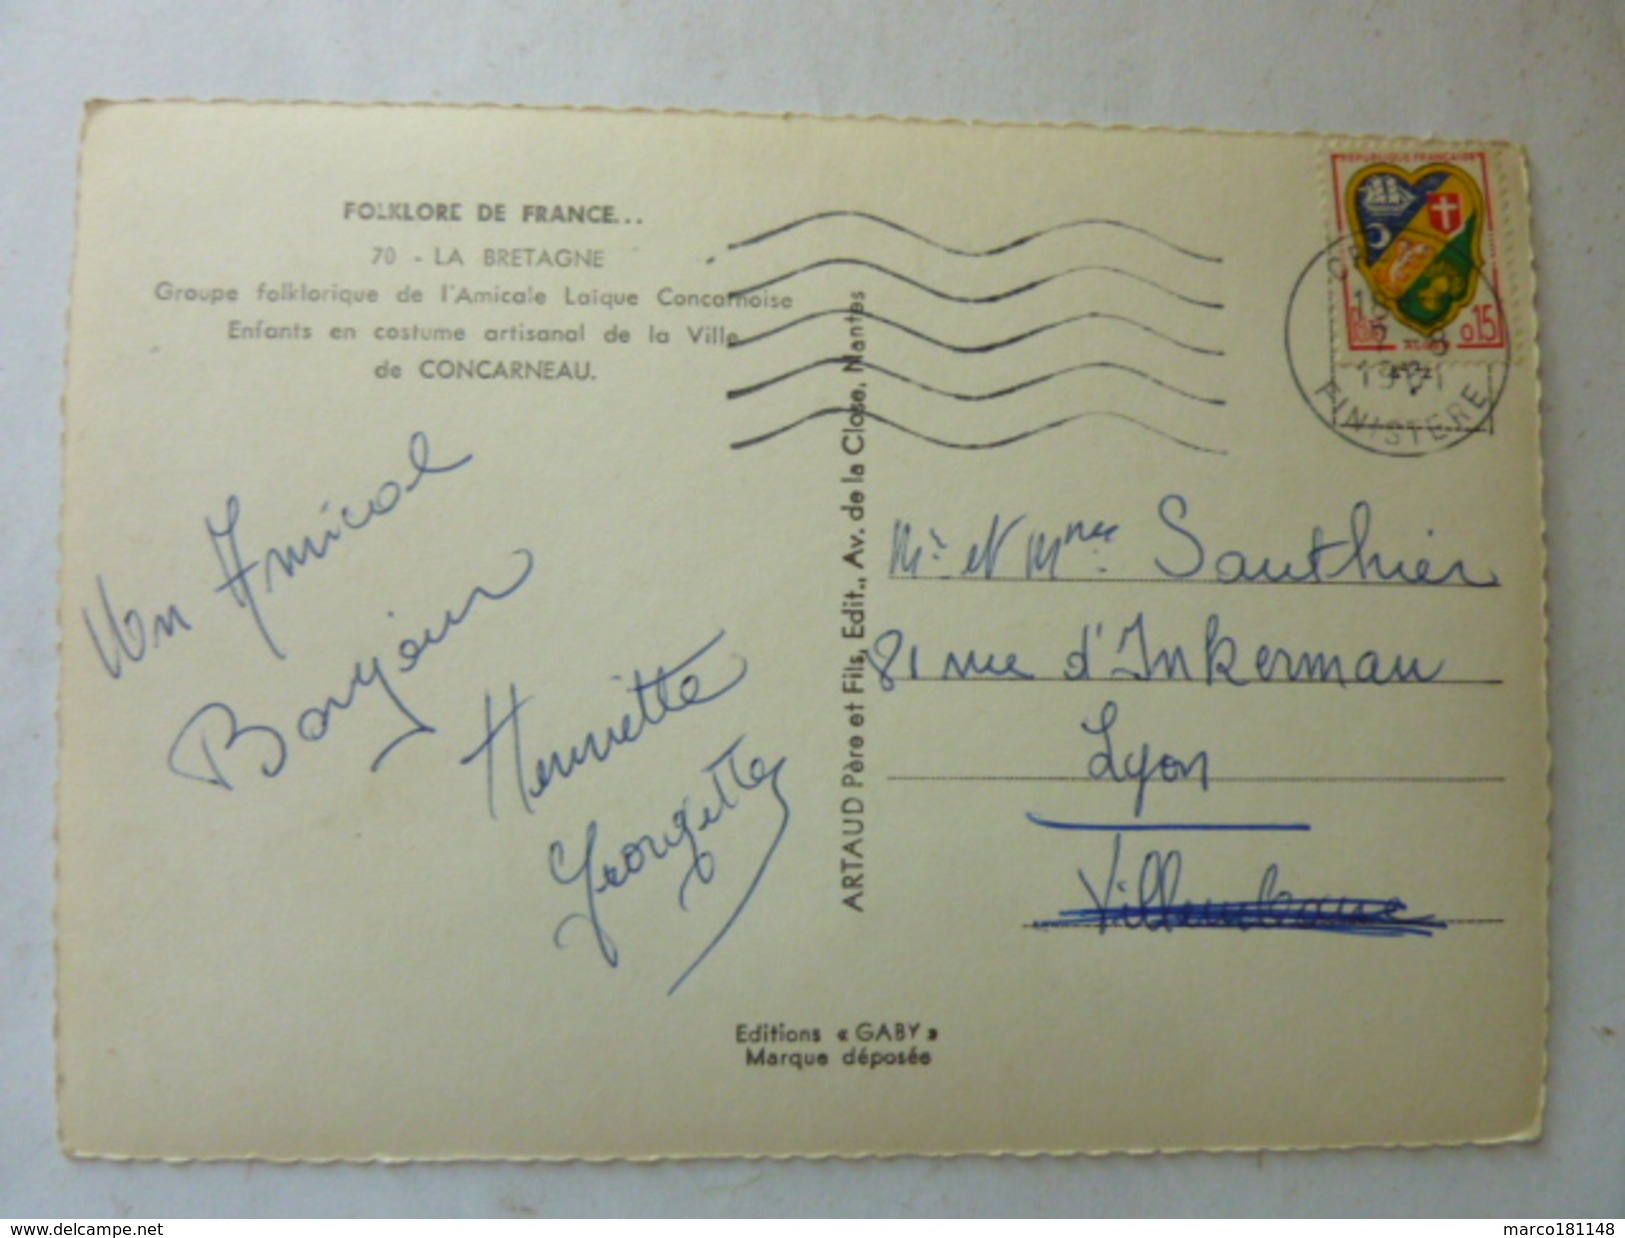 FOLKLORE DE FRANCE...
70 - LA BRETAGNE
Groupe folklorique de l'Amicale Laïque Concarnoise
Enfants en costume artisanal de la Ville
de CONCARNEAU.
Un Amical
Bonjour
Henriette
Georgette
ARTAUD Père et Fils, Edit., Av. de la Close, Nantes
Editions « GABY »
Marque déposée
REPUBLIQUE FRANÇAISE
0,15
FINISTERE
Mr et Mme Sauthier
81 rue d'Inkerman
Lyon
Villeurbanne
www.delcampe.net
marco181148